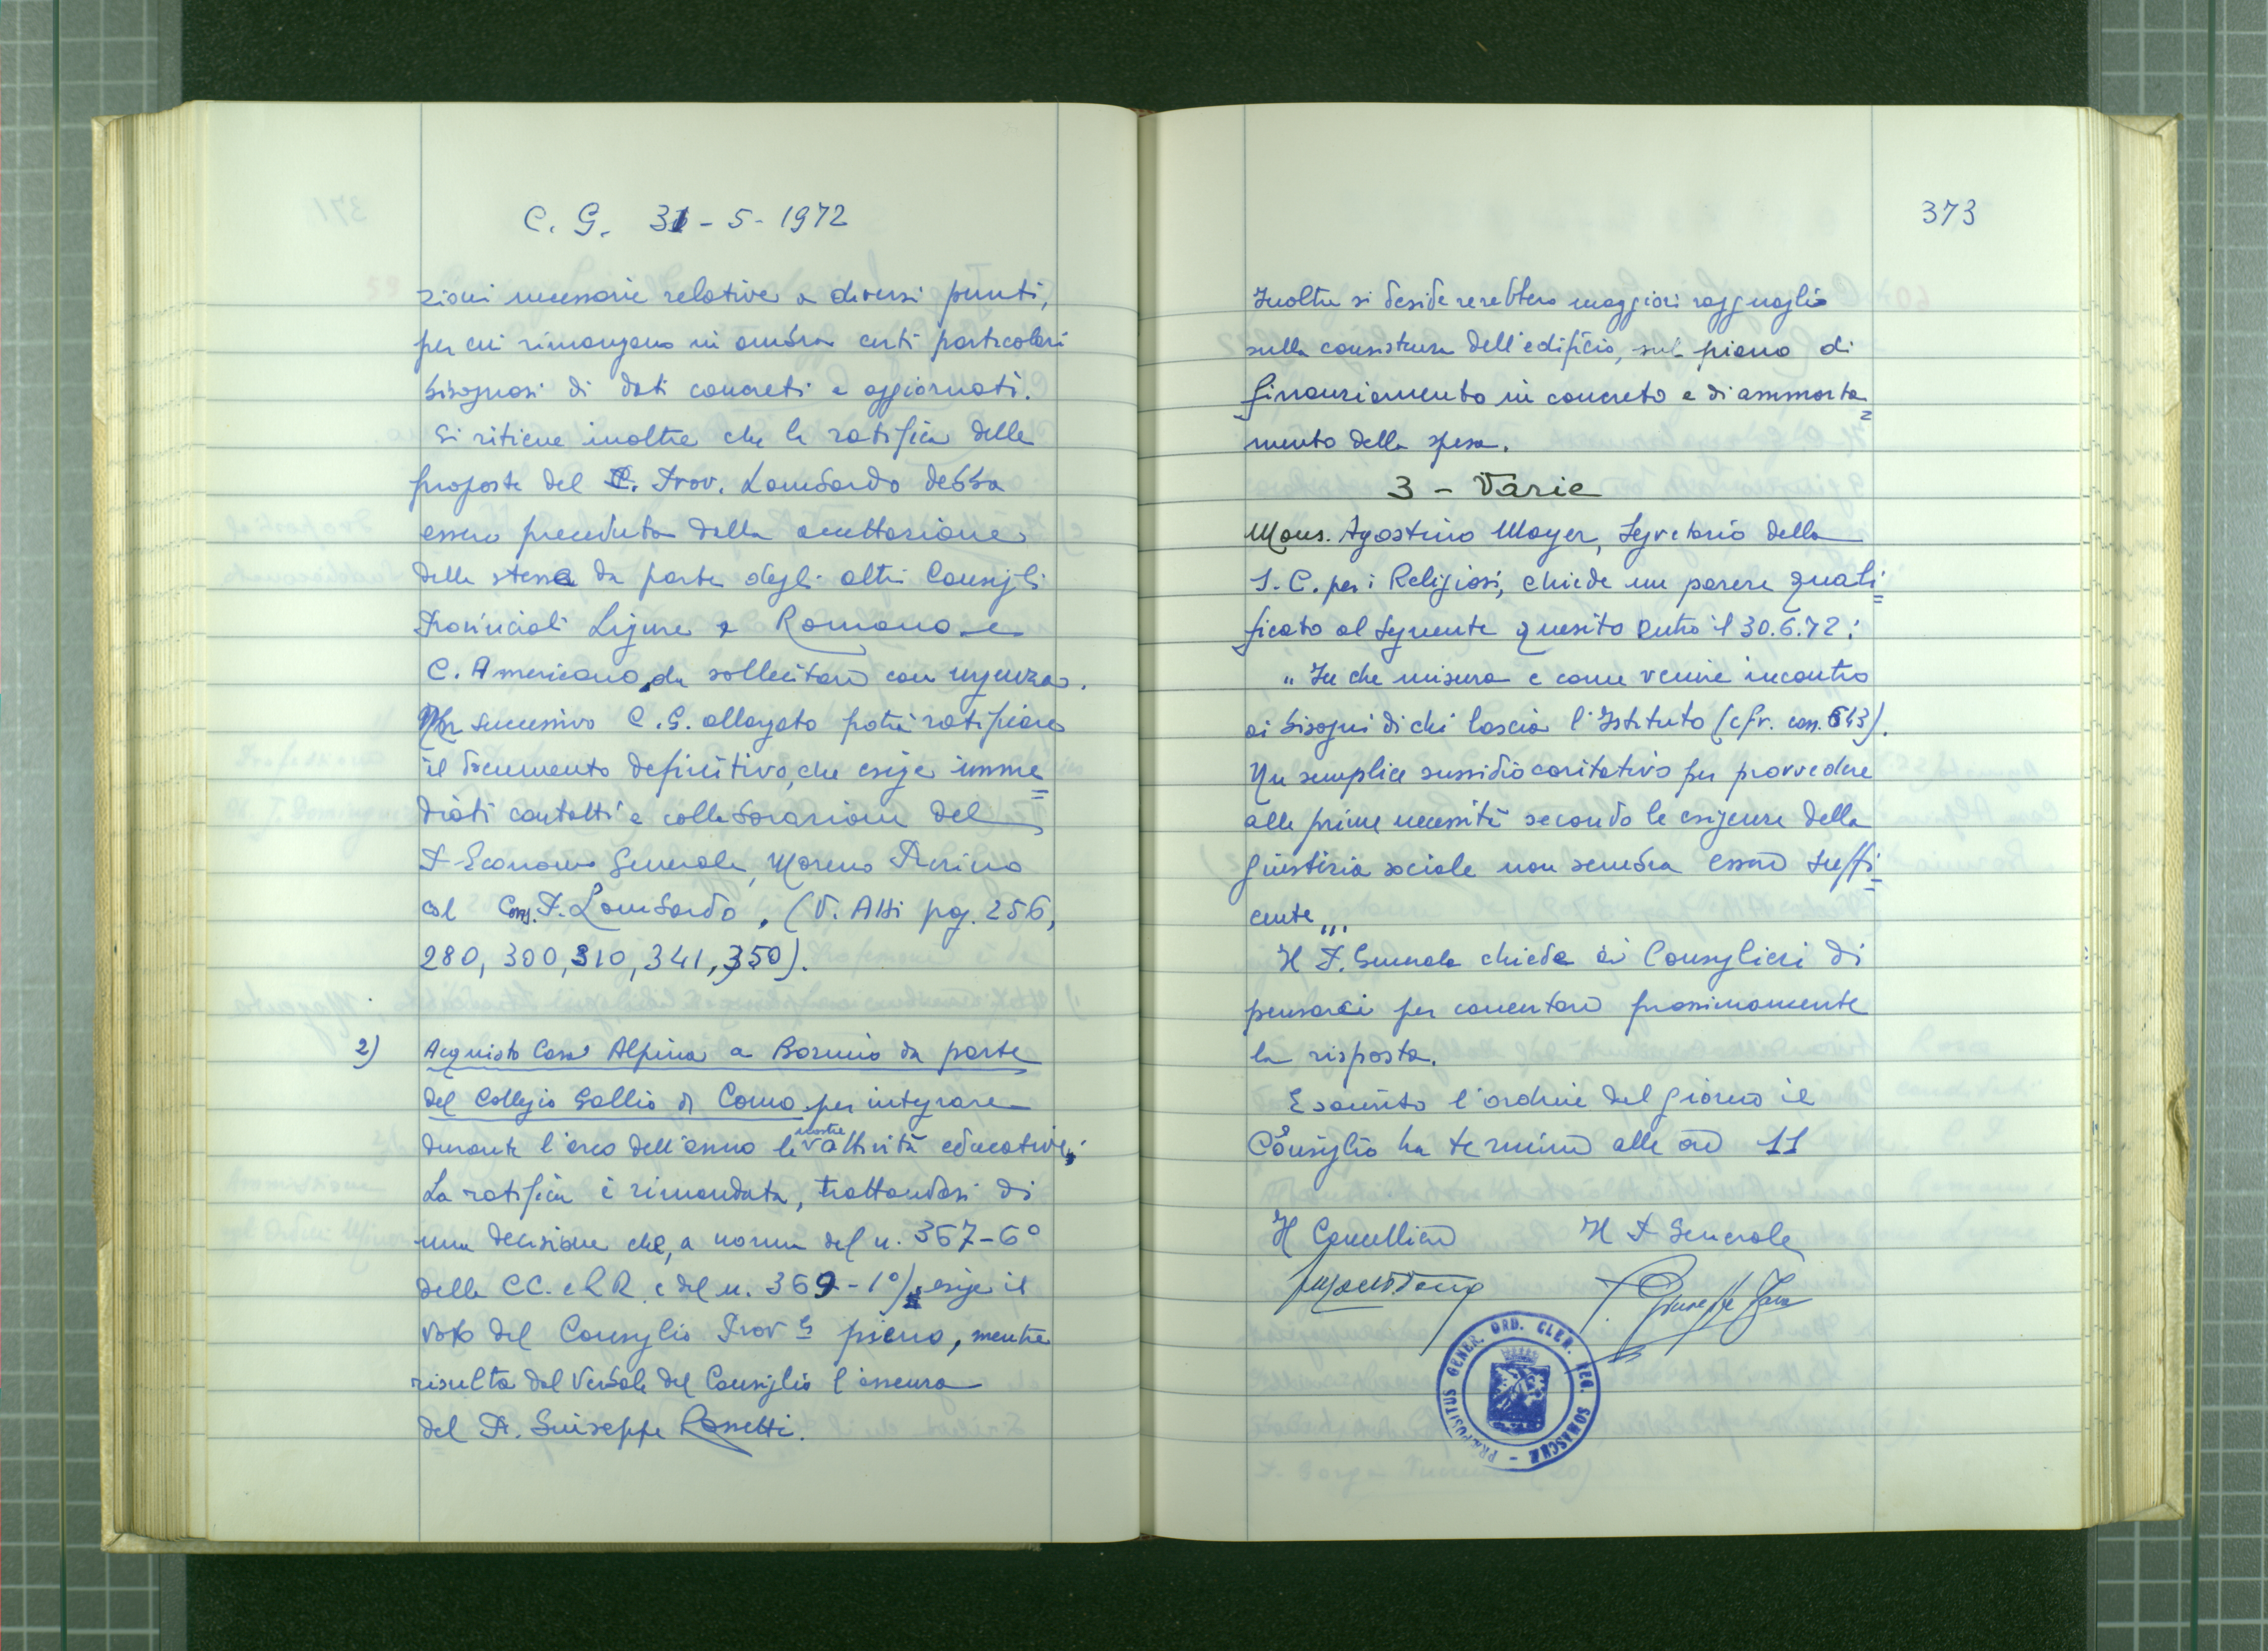 C. G. 31-5-1972
zioni necessarie relative a diversi punti,
per cui rimangono in ombra certi particolari
bisognosi di dati concreti e aggiornati.
Si ritiene inoltre che la ratifica delle
proposte del P. Prov. Lombardo debba
essere preceduta dalla accettazione
delle stesse da parte degli altri Consigli
Provinciali Ligure e Romano e
C. Americano, da sollecitare con urgenza.
successivo C. G. allargato potrà ratificare
il documento definitivo, che esige imme=
diati contatti e collaborazione del
P. Economo Generale, Moreno Pierino
col Cons. P. Lombardo. (V. Atti pg. 256,
280, 300, 310, 341, 350).
2) Acquisto Casa Alpina a Bormio da parte
del Collegio Gallio di Como per integrare
durante l'arco dell'anno le nostre attività educative;
La ratifica è rimandata, trattandosi di
una decisione che, a norma del n. 367-6°
delle CC. e RR. e del n. 369-1°), esige il
voto del Consiglio Prov le pieno, mentre
risulta dal Verbale del Consiglio l'assenza
del P. Giuseppe Rossetti.
373
Inoltre si desidererebbero maggiori ragguagli
sulla consistenza dell'edificio, sul piano di
finanziamento in concreto e di ammorta=
mento della spesa.
3 - Varie
Mons. Agostino Mayer, Segretario della
S. C. per i Religiosi, chiede un parere quali=
ficato al seguente quesito entro il 30.6.72:
"In che misura e come venire incontro
ai bisogni di chi lascia l'Istituto (cfr. can. 643).
Un semplice sussidio caritativo per provvedere
alle prime necessità secondo le esigenze della
giustizia sociale non sembra essere suffi=
cente".
Il P. Generale chiede ai Consiglieri di
pensarci per concertare prossimamente
la risposta.
Esaurito l'ordine del giorno il
Consiglio ha termine alle ore 11
Il Cancelliere Il P. Generale
P. Giuseppe Fava
PRÆPOSITUS GENER. ORD. CLER. REG. SOMASCHÆ